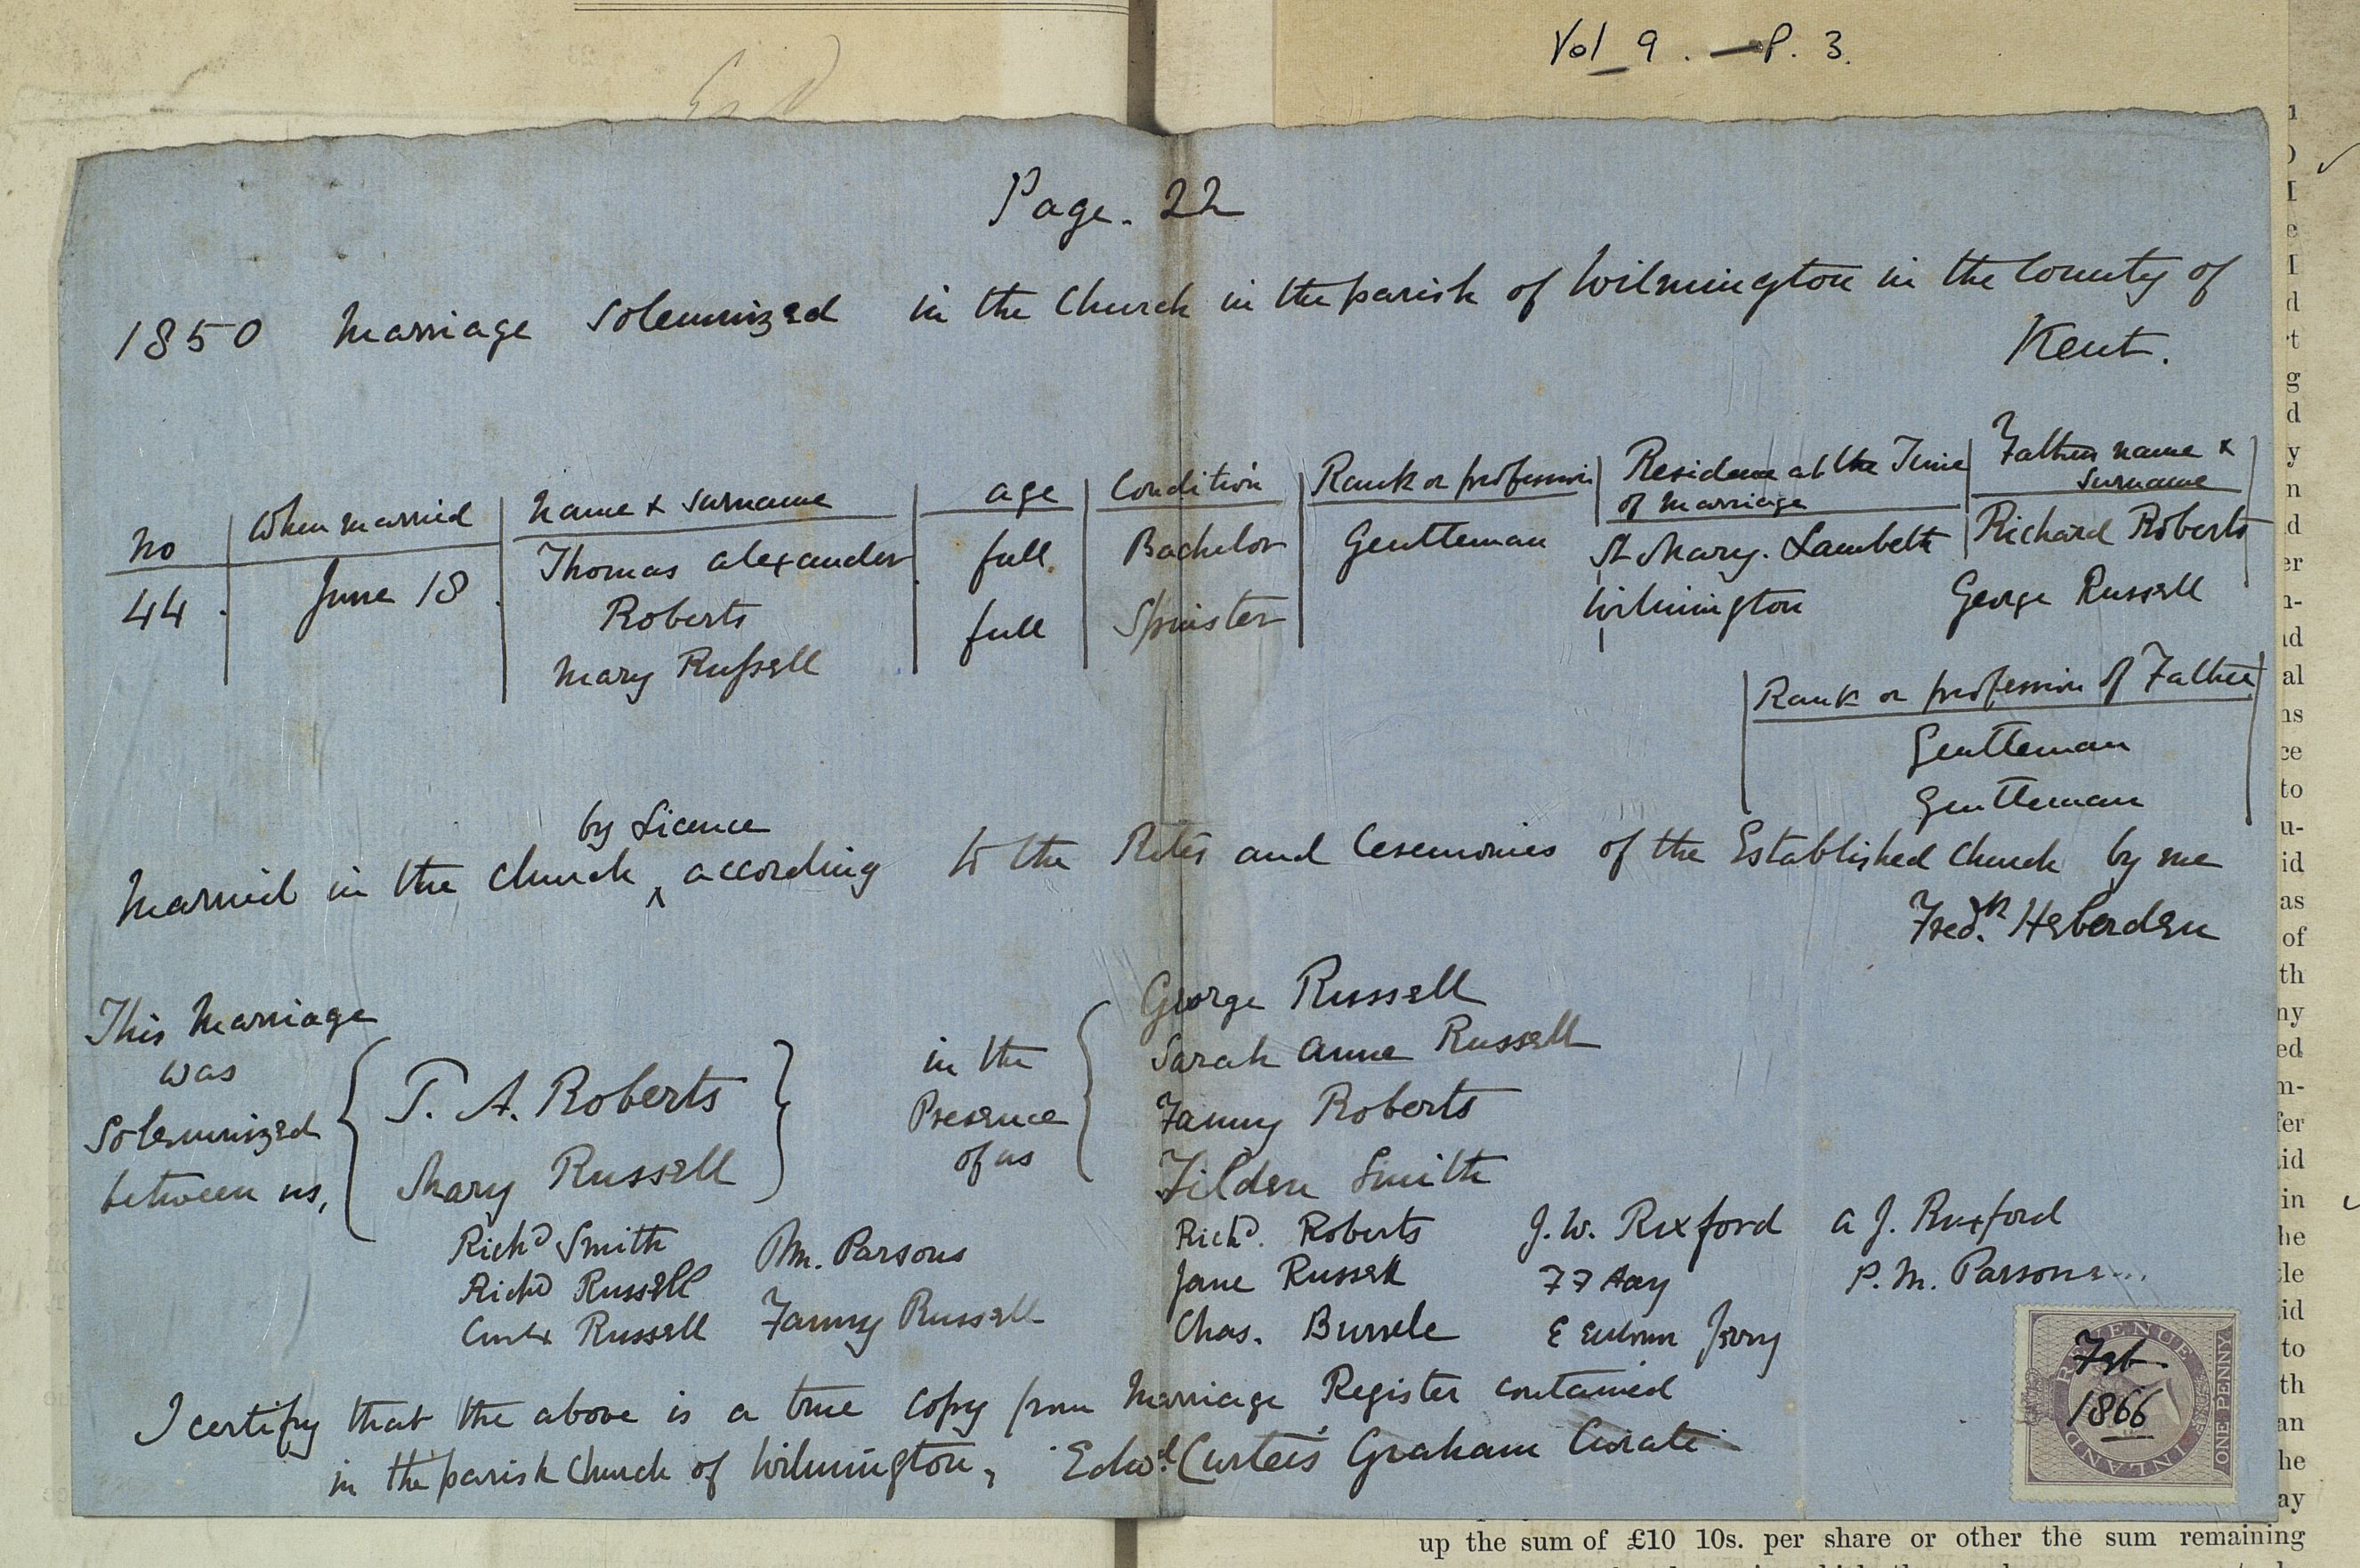 Vol 9. — P. 3.
Page. 22
1850 Marriage solemnized in the Church in the parish of Wilmington in the County of
Kent.
No | When married | Name & surname | age | Condition | Rank or profession | Residence at the Time of Marriage | Fathers name & Surname
44. | June 18. | Thomas Alexander Roberts | full | Bachelor | Gentleman | St Mary. Lambeth | Richard Roberts
Mary Russell | full | Spinster | Wilmington | George Russell
Rank or profession of Father
Gentleman
Gentleman
by Licence
Married in the Church ^ according to the Rites and Ceremonies of the Established Church by me
Fredk. Heberden
This Marriage
was
Solemnized
between us,
T. A. Roberts
Mary Russell
in the
Presence
of us
George Russell
Sarah Anne Russell
Fanny Roberts
Tilden Smith
Richd Smith
Richd Russell
Russell
Wm. Parsons
Fanny Russell
Richd. Roberts
Jane Russell
Chas.
J. W. Rexford
F F Hay
E
A J. Ruxford
P. M. Parsons
I certify that the above is a true copy from Marriage Register contained
in the parish Church of Wilmington, Edwd. Curteis Graham Curate
INLAND REVENUE
ONE PENNY
Feb
1866
up the sum of £10 10s. per share or other the sum remaining